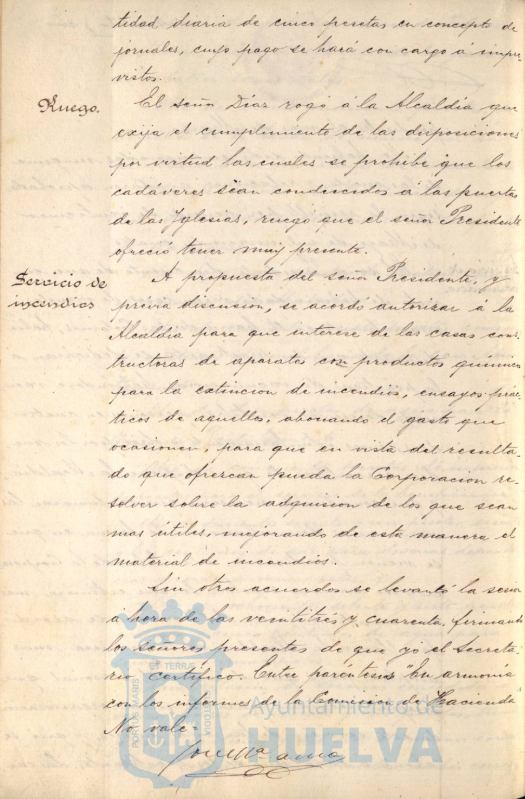 tidad diaria de cinco pesetas en concepto de
jornales, cuyo pago se hará con cargo á impre-
vistos.
Ruego.
El señor Díaz rogó á la Alcaldía que
exija el cumplimiento de las disposiciones
por virtud las cuales se prohibe que los
cadáveres sean conducidos á las puertas
de las Iglesias, ruego que el señor Presidente
ofreció tener muy presente.
Servicio de
incendios
A propuesta del señor Presidente, y
prévia discusión, se acordó autorizar á la
Alcaldía para que interese de las casas cons-
tructoras de aparatos con productos químicos
para la extinción de incendios, ensayos prác-
ticos de aquellos, abonando el gasto que
ocasionen, para que en vista del resulta-
do que ofrezcan pueda la Corporación re-
solver sobre la adquision de los que sean
mas útiles, mejorando de esta manera el
material de incendios.
Sin otros acuerdos se levantó la sesion
á hora de las veintitrés y cuarenta, firmando
los señores presentes de que yó el Secreta-
rio certifico. Entre paréntesis "En armonía
con los informes de la Comision de Hacienda
No vale.
PORTUS MARIS
ET TERRAE
CUSTODIA
Ayuntamiento de
HUELVA